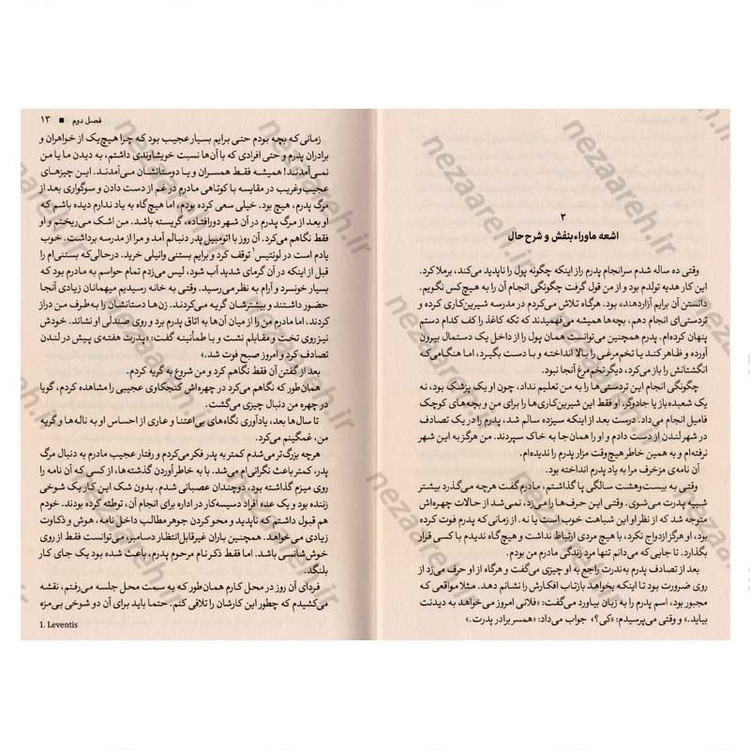 ۲
اشعه ماوراءبنفش و شرح حال
وقتی ده ساله شدم سرانجام پدرم راز اینکه چگونه پول را ناپدید می‌کند، برملا کرد.
این کار هدیه تولدم بود و از من قول گرفت چگونگی انجام آن را به هیچ‌کس نگویم.
دانستن آن برایم آزاردهنده بود. هرگاه تلاش می‌کردم در مدرسه شیرین‌کاری کرده و
تردستی‌ای انجام دهم، بچه‌ها همیشه می‌فهمیدند که تکه کاغذ را کف کدام دستم
پنهان کرده‌ام. پدرم همچنین می‌توانست همان پول را از داخل یک دستمال بیرون
آورده و ظاهر کند یا تخم‌مرغی را بالا انداخته و با دست بگیرد، اما هنگامی‌که
انگشتانش را باز می‌کرد، دیگر تخم مرغ آنجا نبود.
چگونگی انجام این تردستی‌ها را به من تعلیم نداد، چون او یک پزشک بود، نه
یک شعبده‌باز یا جادوگر. او فقط این شیرین‌کاری‌ها را برای من و بچه‌های کوچک
فامیل انجام می‌داد. درست بعد از اینکه سیزده سالم شد، پدرم را در یک تصادف
در شهر لندن از دست دادم و او را همان‌جا به خاک سپردند. من هرگز به این شهر
نرفته‌ام و به همین خاطر هیچ‌وقت مزار پدرم را ندیده‌ام.
آن نامه‌ی مزخرف مرا به یاد پدرم انداخته بود.
وقتی به بیست‌وهشت سالگی پا گذاشتم، مادرم گفت هرچه می‌گذرد بیشتر
شبیه پدرت می‌شوی. وقتی این حرف‌ها را می‌زد، نمی‌شد از حالات چهره‌اش
متوجه شد که از نظر او این شباهت خوب است یا نه. از زمانی که پدرم فوت کرده
بود، او هرگز ازدواج نکرد، با هیچ مردی ارتباط نداشت و هیچ‌گاه ندیدم با کسی قرار
بگذارد. تا جایی که می‌دانم تنها مرد زندگی مادرم من بودم.
بعد از تصادف پدرم به‌ندرت راجع به او چیزی می‌گفت و هرگاه از او حرف می‌زد از
روی ضرورت بود تا اینکه بخواهد بازتاب افکارش را نشانم دهد. مثلا مواقعی که
مجبور بود، اسم پدرم را به زبان بیاورد می‌گفت: «فلانی امروز می‌خواهد به دیدنت
بیاید.» و وقتی می‌پرسیدم: «کی؟» جواب می‌داد: «همسر برادر پدرت.»
فصل دوم ■ ۱۳
زمانی که بچه بودم حتی برایم بسیار عجیب بود که چرا هیچ‌یک از خواهران و
برادران پدرم و حتی افرادی که با آن‌ها نسبت خویشاوندی داشتم، به دیدن ما یا من
نمی‌آمدند! همیشه فقط همسران و یا دوستانشان می‌آمدند. این چیزهای
عجیب‌وغریب در مقایسه با کوتاهی مادرم در غم از دست دادن و سوگواری بعد از
مرگ پدرم، هیچ بود. خیلی سعی کرده بودم، اما هیچ‌گاه به یاد ندارم دیده باشم که
او بعد از مرگ پدرم در آن شهر دورافتاده، گریسته باشد. من اشک می‌ریختم و او
فقط نگاهم می‌کرد. آن روز با اتومبیل پدر دنبالم آمد و مرا از مدرسه برداشت. خوب
یادم است در لونتیس۱ توقف کرد و برایم بستنی وانیلی خرید. درحالی‌که بستنی‌ام را
قبل از اینکه در آن گرمای شدید آب شود، لیس می‌زدم تمام حواسم به مادرم بود که
بسیار خونسرد و آرام به نظر می‌رسید. وقتی به خانه رسیدیم میهمانان زیادی آنجا
حضور داشتند و بیشترشان گریه می‌کردند. زن‌ها دستانشان را به‌طرف من دراز
کردند، اما مادرم من را از میان آن‌ها به اتاق پدرم برد و روی صندلی او نشاند. خودش
نیز روی تخت و مقابلم نشست و با طمأنینه گفت: «پدرت هفته‌ی پیش در لندن
تصادف کرد و امروز صبح فوت شد.»
بعد از گفتن آن فقط نگاهم کرد و من شروع به گریه کردم.
همان‌طور که نگاهم می‌کرد در چهره‌اش کنجکاوی عجیبی را مشاهده کردم، گویا
در چهره من دنبال چیزی می‌گشت.
تا سال‌ها بعد، یادآوری نگاه‌های بی‌اعتنا و عاری از احساس او به ناله‌ها و گریه
من، غمگینم می‌کرد.
هرچه بزرگ‌تر می‌شدم کمتر به پدر فکر می‌کردم و رفتار عجیب مادرم به دنبال مرگ
پدر، کمتر باعث نگرانی‌ام می‌شد. با به خاطر آوردن گذشته‌ها، از کسی که آن نامه را
روی میزم گذاشته بود، دوچندان عصبانی شدم. بدون شک این کار یک شوخی
زننده بود و یک عده افراد دسیسه‌کار در اداره برای انجام آن، توطئه کرده بودند. خودم
هم قبول داشتم که ناپدید و محو کردن جوهر مطالب داخل نامه، هوش و ذکاوت
زیادی می‌خواهد. همچنین باران غیرقابل‌انتظار دسامبر، می‌توانست فقط از روی
خوش‌شانسی باشد. اما فقط ذکر نام مرحوم پدرم، باعث شده بود یک جای کار
بلنگد.
فردای آن روز در محل کارم همان‌طور که به سمت محل جلسه می‌رفتم، نقشه
می‌کشیدم که چطور این کارشان را تلافی کنم. حتما باید برای آن دو شوخی بی‌مزه
1. Leventis
nezaareh.ir